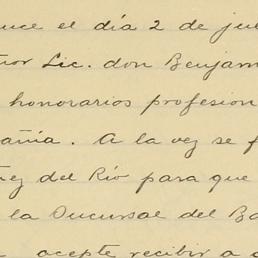 uce el día 2 de jul
ñor Lic. don Benjam
honorarios profesion
añía. A la vez se f
ez del Río para que
la Sucursal del Ba
acepte recibir a